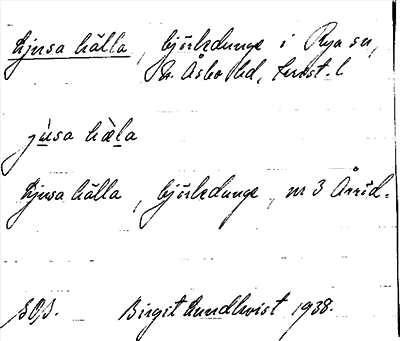 Ljusa källa, björkdunge i Rya sn,
N. Åsbo hd, Krist. l
jùsa kæ̀la
Ljusa källa, björkdunge, nr 3 Årröd.
Birgit Lundkvist 1938.